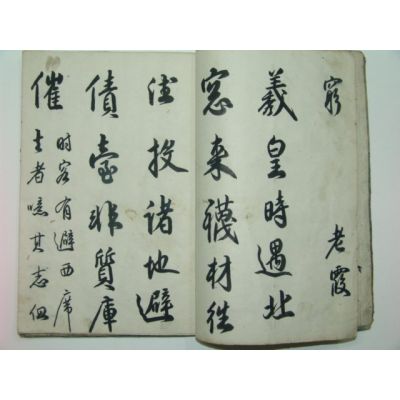 窮
老霞
羲皇時遇北
窓来襪材往
往投諸地避
債臺非質庫
催
时客有避西席
者噫其志但